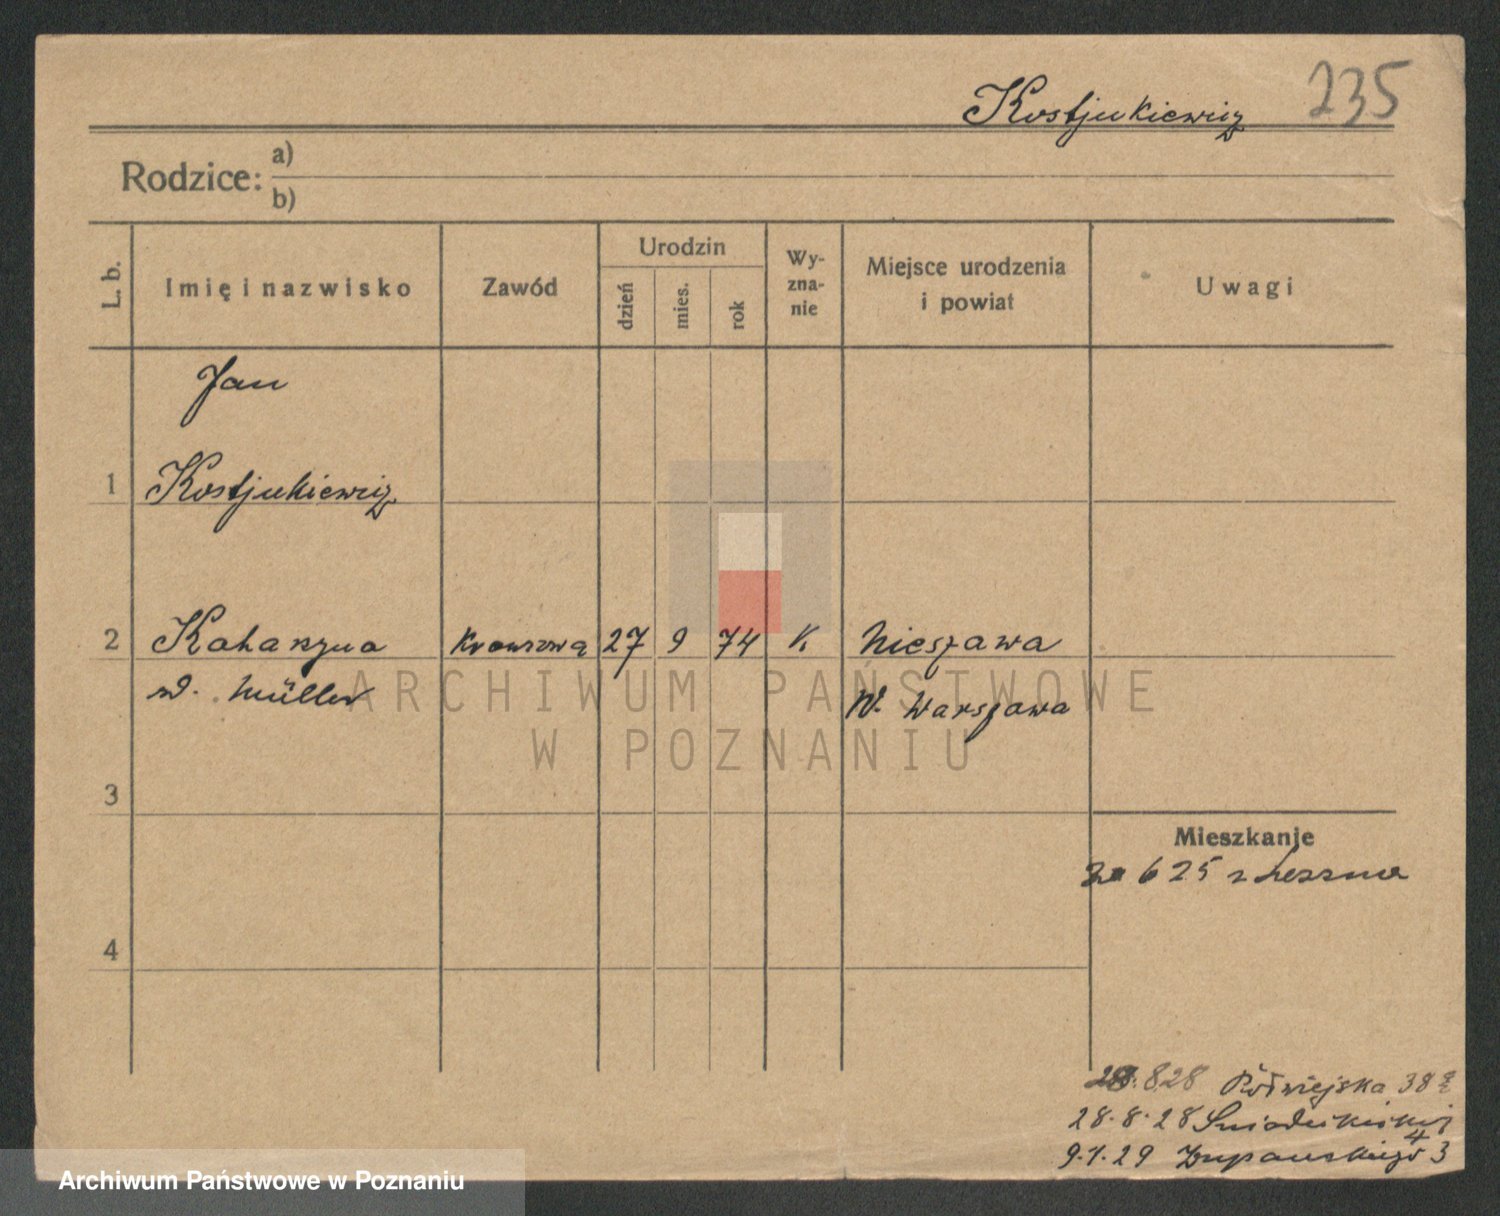 Kostjukiewicz 235
Rodzice: a)
b)
L. b. Imię i nazwisko Zawód Urodzin dzień mies. rok Wy-zna-nie Miejsce urodzenia i powiat Uwagi
Jan
1 Kostjukiewicz
2 Katarzyna Krawcowa 27 9 74 K Nieszawa
d. Müller W. Warszawa
3
Mieszkanie
625 z Leszna
4
28.8.28 Półwiejska 38
28.8.28 Śniadeckich
4
9.1.29 Żupańskiego 3
ARCHIWUM PAŃSTWOWE
W POZNANIU
Archiwum Państwowe w Poznaniu